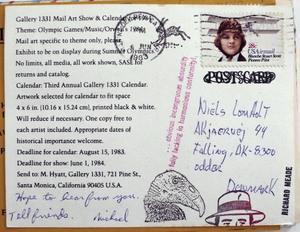 Gallery 1331 Mail Art Show & Calendar
Theme: Olympic Games/Music/Orwell's 1984
Mail art specific to theme only, please.
Exhibit to be on display during Summer Olympics
No limits, all media, all work shown, SASE for
returns and catalog.
Calendar: Third Annual Gallery 1331 Calendar.
Artwork selected for calendar to fit space
4 x 6 in. (10.16 x 15.24 cm), printed black & white.
Will reduce if necessary. One copy free to
each artist included. Appropriate dates of
historical importance welcome.
Deadline for calendar: August 15, 1983.
Deadline for show: June 1, 1984.
Send to: M. Hyatt, Gallery 1331, 721 Pine St.,
Santa Monica, California 90405 U.S.A.
Hope to hear from you.
Tell friends. Michael
PM
JUN
1983
28c
USAirmail
Blanche Stuart Scott
Pioneer Pilot
POSTCARD
...obvious incongruous absurdity
fully lacking in harmonious conformity!
Niels Lomholt
Falling, DK-8300
odder
Denmark
RICHARD MEADE